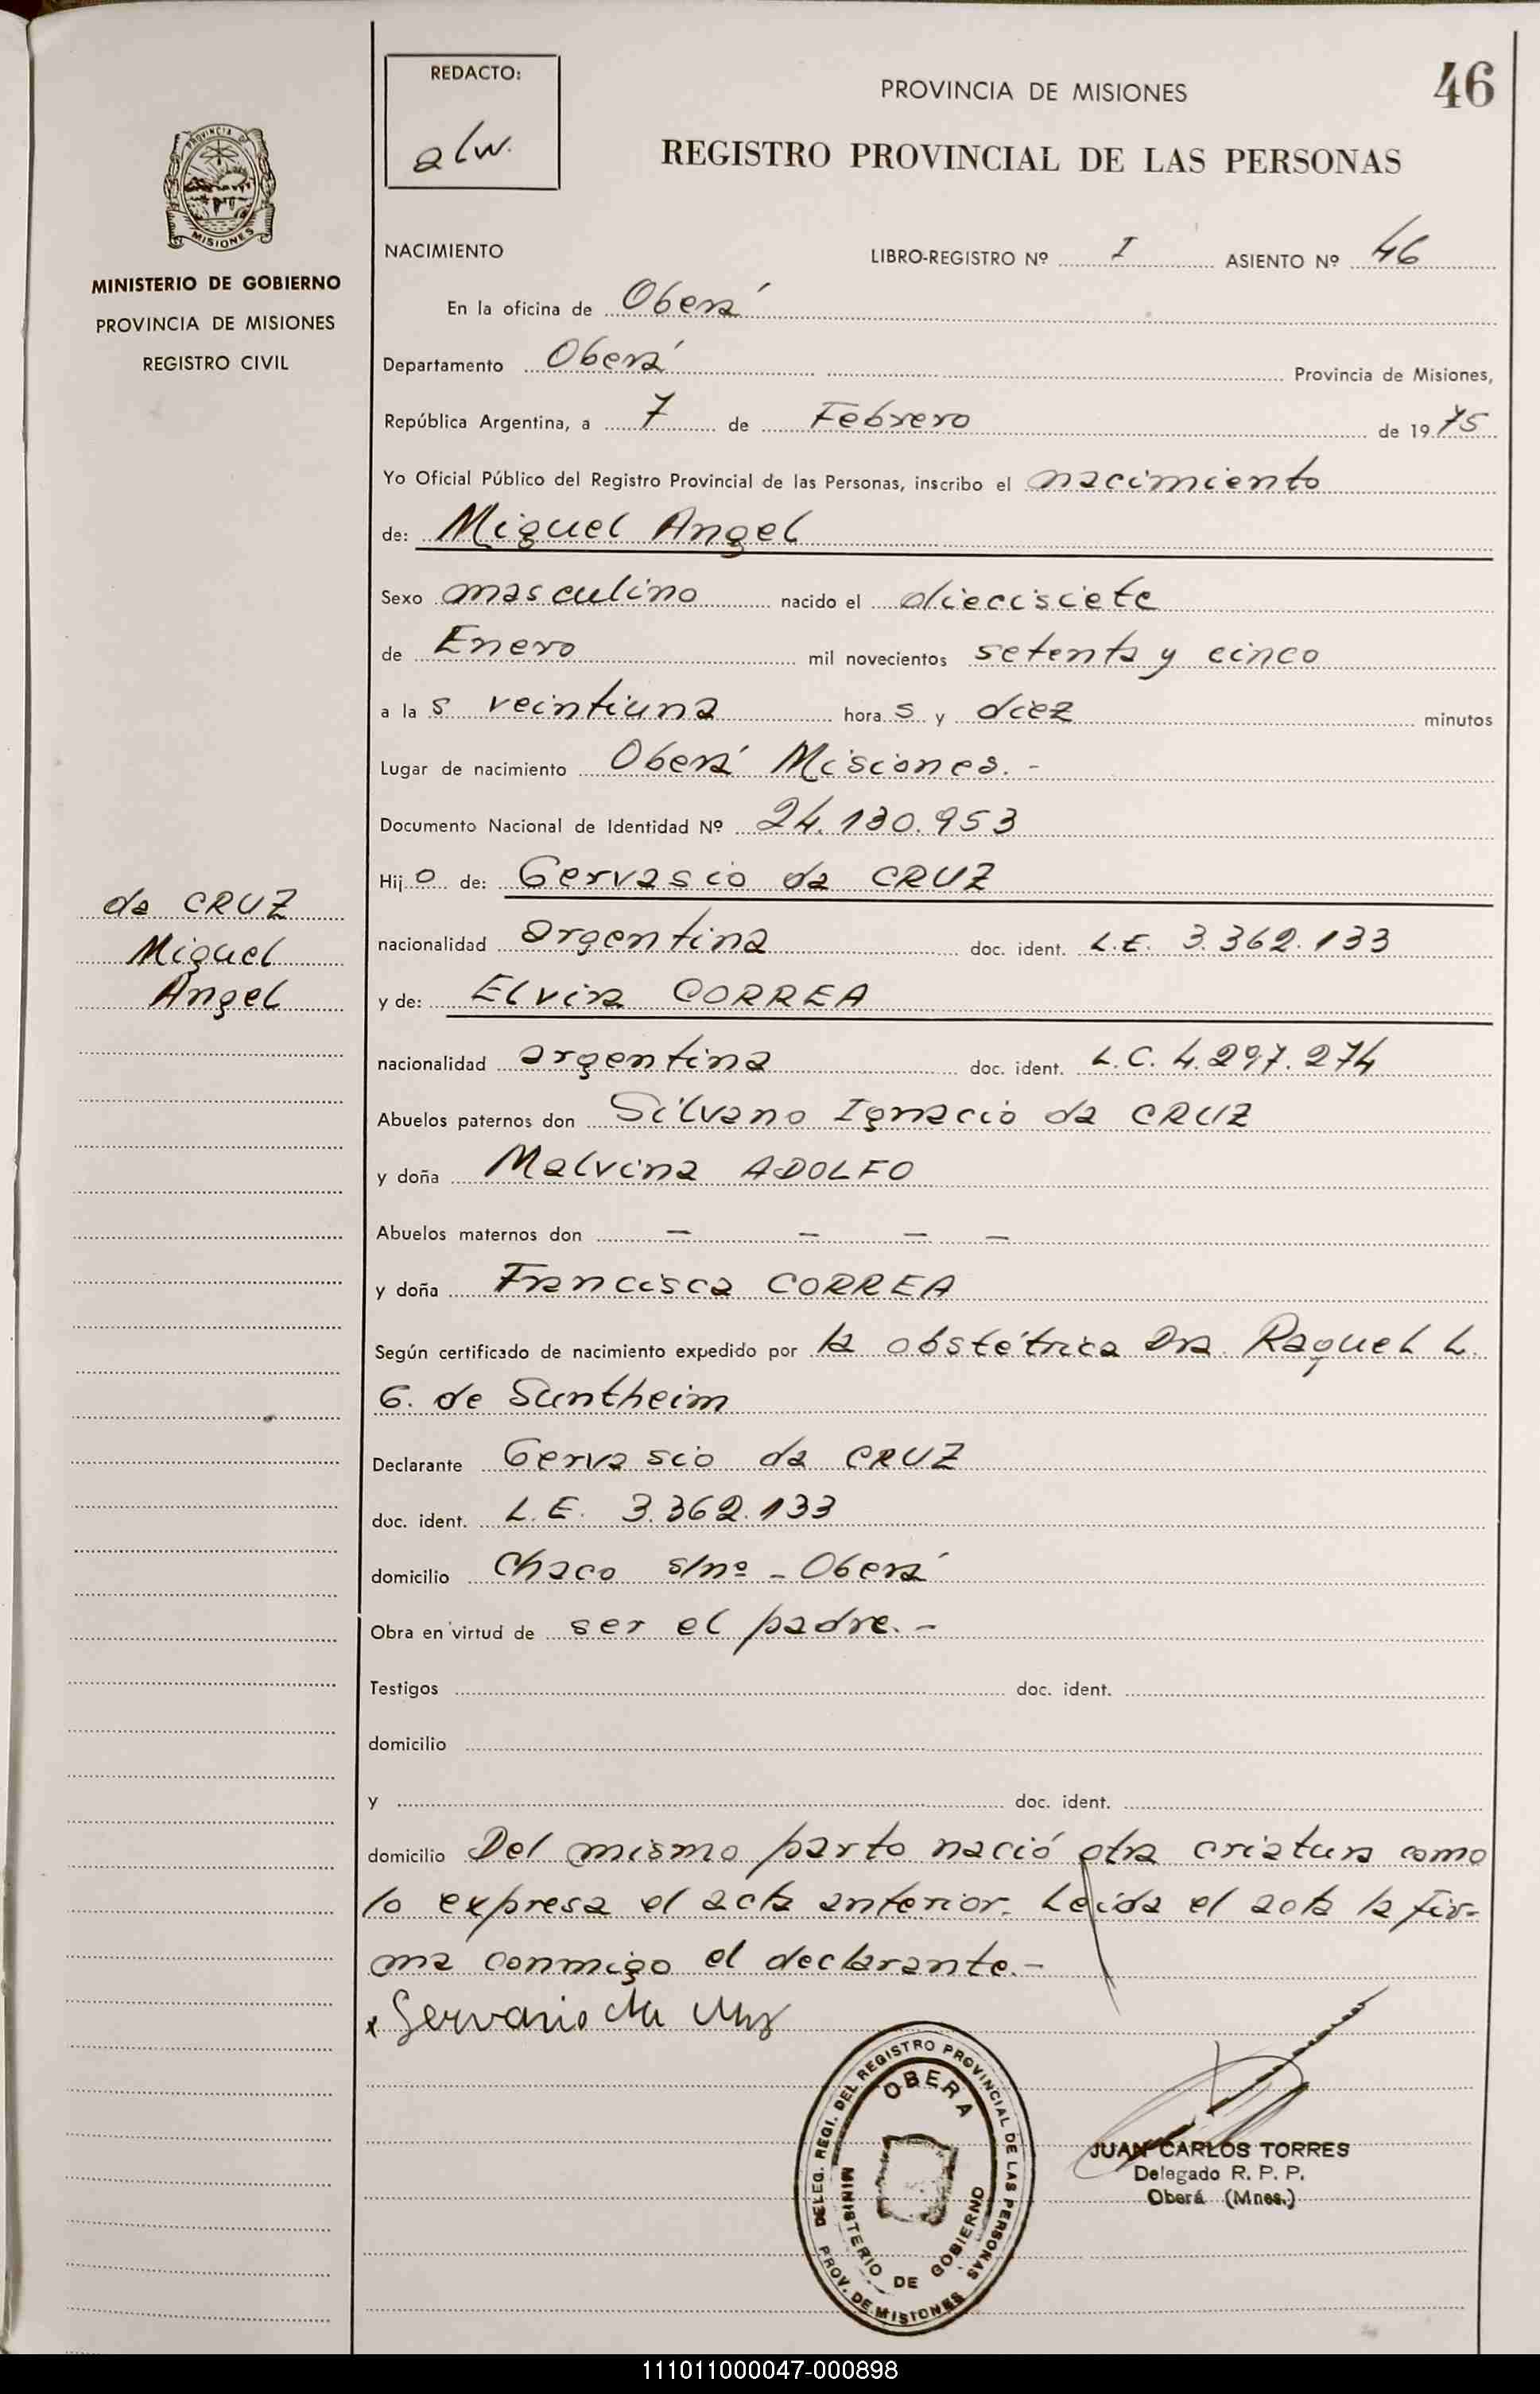 REDACTO:
alw.
PROVINCIA DE MISIONES
46
REGISTRO PROVINCIAL DE LAS PERSONAS
PROVINCIA DE
MISIONES
MINISTERIO DE GOBIERNO
PROVINCIA DE MISIONES
REGISTRO CIVIL
NACIMIENTO LIBRO-REGISTRO Nº I ASIENTO Nº 46
En la oficina de Oberá
Departamento Oberá Provincia de Misiones,
República Argentina, a 7 de Febrero de 1975
Yo Oficial Público del Registro Provincial de las Personas, inscribo el nacimiento
de: Miguel Angel
Sexo masculino nacido el diecisiete
de Enero mil novecientos setenta y cinco
a las veintiuna horas y diez minutos
Lugar de nacimiento Oberá Misiones.-
Documento Nacional de Identidad Nº 24.130.953
Hijo de: Gervasio da CRUZ
da CRUZ
Miguel
Angel
nacionalidad argentina doc. ident. L.E. 3.362.133
y de: Elvira CORREA
nacionalidad argentina doc. ident. L.C. 4.297.274
Abuelos paternos don Silvano Ignacio da CRUZ
y doña Malvina ADOLFO
Abuelos maternos don - - - -
y doña Francisca CORREA
Según certificado de nacimiento expedido por la obstétrica Dra. Raquel L.
G. de Suntheim
Declarante Gervasio da CRUZ
doc. ident. L.E. 3.362.133
domicilio Chaco s/nº - Oberá
Obra en virtud de ser el padre.-
Testigos doc. ident.
domicilio
y doc. ident.
domicilio Del mismo parto nació otra criatura como
lo expresa el acta anterior. Leída el acta la fir-
ma conmigo el declarante.-
x Gervasio da Cruz
DELEG. REGI. DEL REGISTRO PROVINCIAL DE LAS PERSONAS
OBERA
MINISTERIO DE GOBIERNO
PROV. DE MISIONES
JUAN CARLOS TORRES
Delegado R. P. P.
Oberá (Mnes.)
111011000047-000898